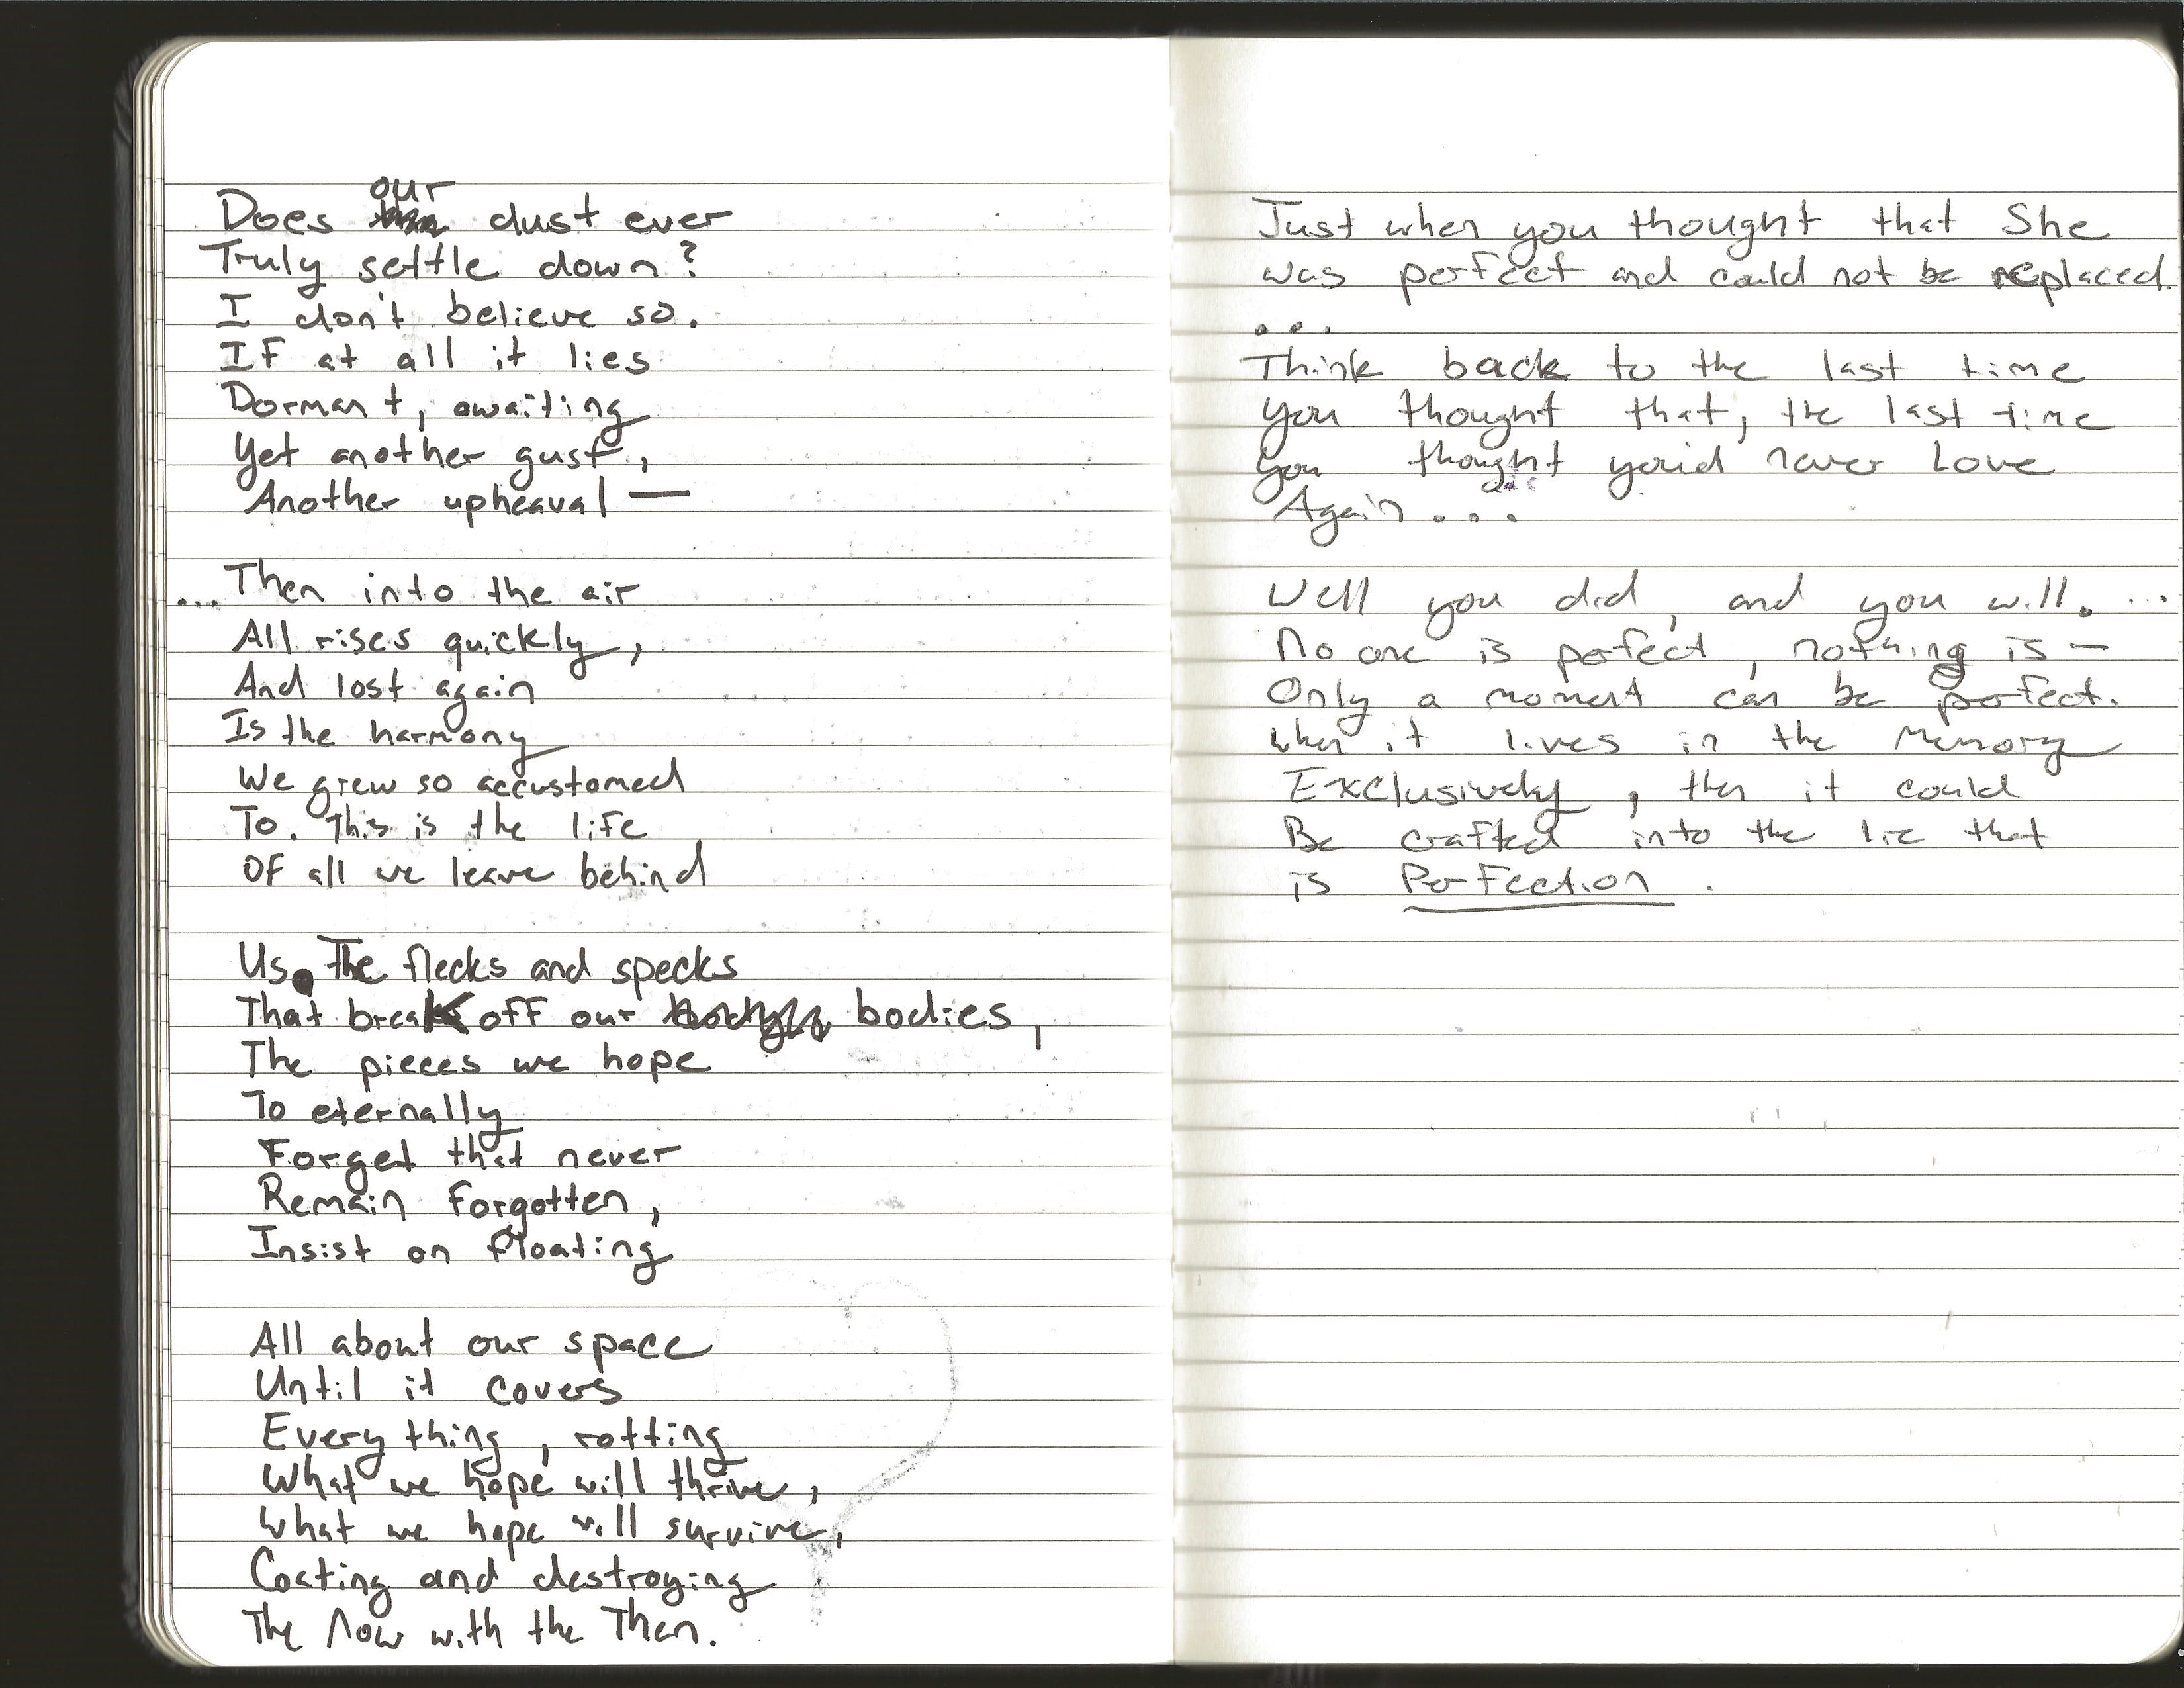 Does our dust ever
Truly settle down?
I don't believe so.
IF at all it lies
Dormant, awaiting
Yet another gust,
Another upheaval —
... Then into the air
All rises quickly,
And lost again
Is the harmony
We grew so accustomed
To. This is the life
OF all we leave behind
Us. The flecks and specks
That break off our bodies,
The pieces we hope
To eternally
Forget that never
Remain forgotten,
Insist on floating
All about our space
Until it covers
Everything, rotting
What we hope will thrive,
What we hope will survive,
Coating and destroying
The Now with the Then.
Just when you thought that She
was perfect and could not be replaced.
...
Think back to the last time
you thought that, the last time
you thought you'd never Love
Again....
Well you did, and you will. ...
No one is perfect, nothing is —
Only a moment can be perfect.
when it lives in the Memory
Exclusively, then it could
Be crafted into the lie that
is Perfection.